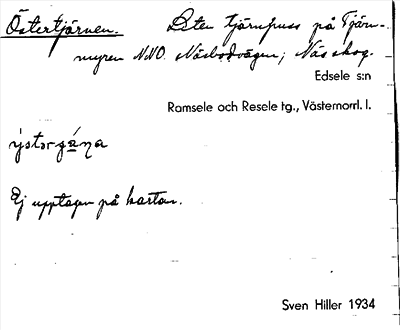 Östertjärnen. Liten tjärnpuss på Tjärn-
myren NNO. Näsbodvägen; Näs skog.
Edsele s:n
Ramsele och Resele tg., Västernorrl. l.
Ej upptagen på kartan.
Sven Hiller 1934